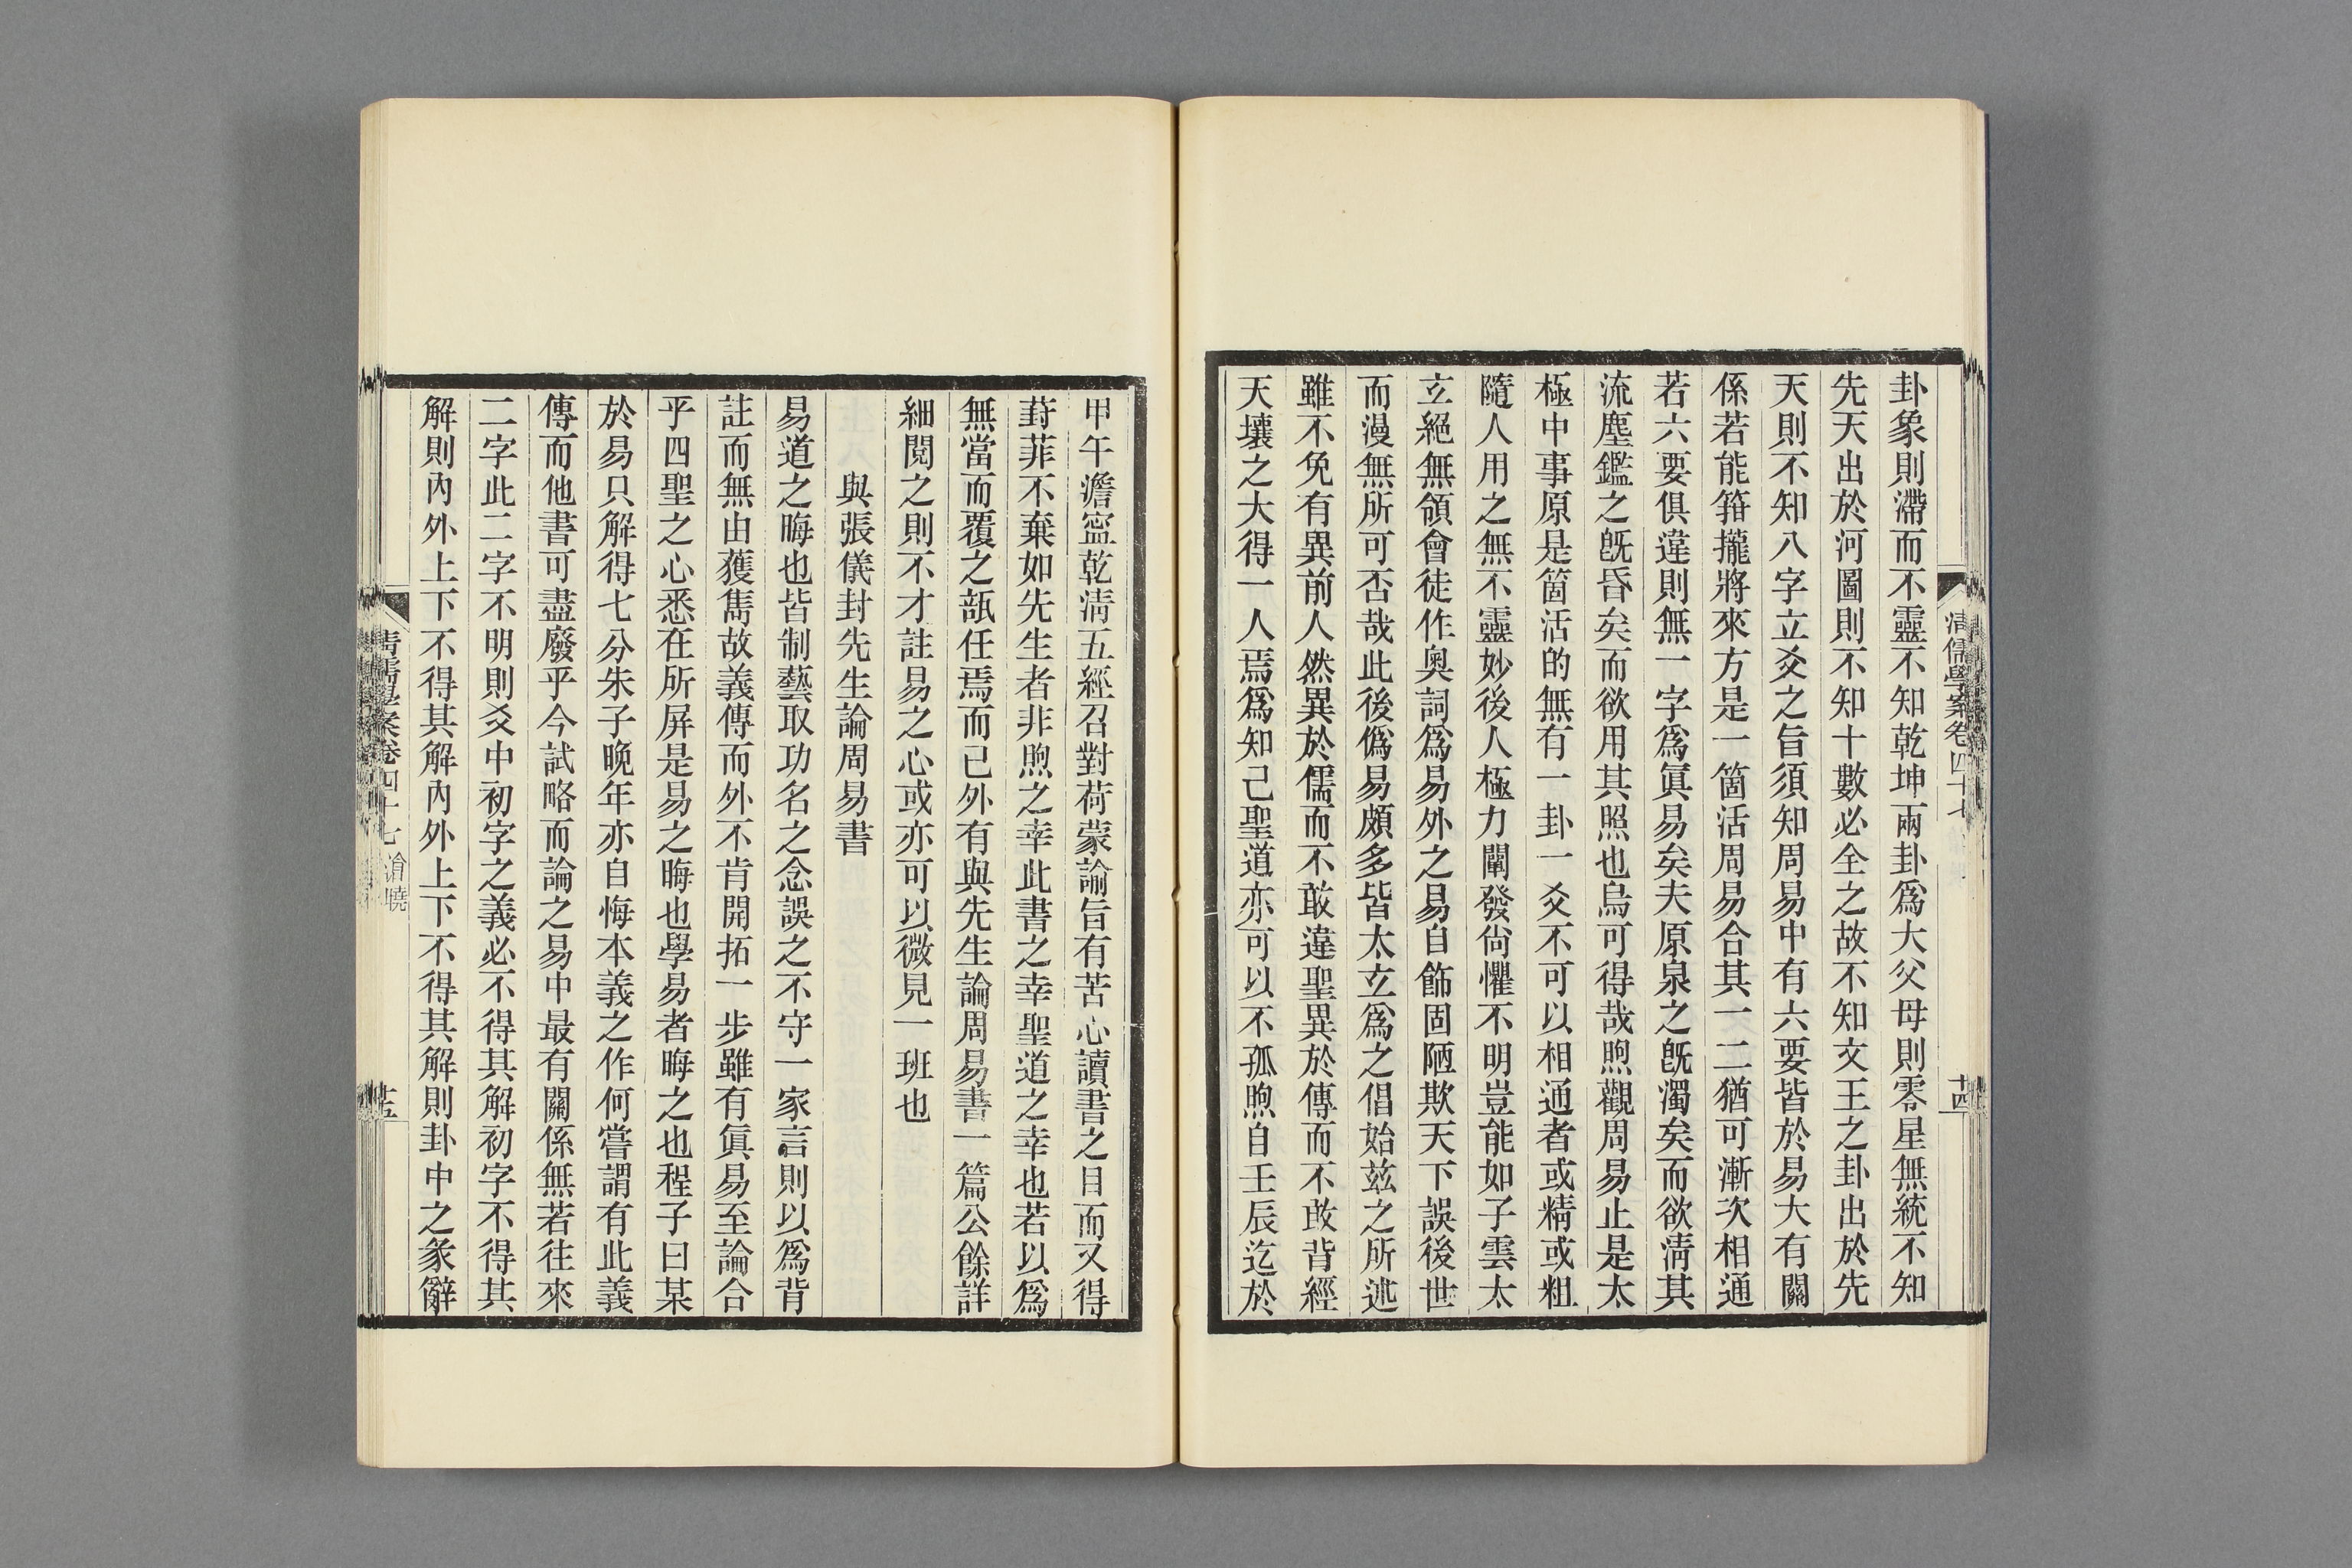 清儒學案卷四十七
十四
卦象則滯而不靈不知乾坤兩卦爲大父母則零星無統不知
先天出於河圖則不知十數必全之故不知文王之卦出於先
天則不知八字立爻之旨須知周易中有六要皆於易大有關
係若能箝攏將來方是一箇活周易合其一二猶可漸次相通
若六要俱違則無一字爲眞易矣夫原泉之旣濁矣而欲淸其
流塵鑑之旣昏矣而欲用其照也烏可得哉煦觀周易止是太
極中事原是箇活的無有一卦一爻不可以相通者或精或粗
隨人用之無不靈妙後人極力闡發尙懼不明豈能如子雲太
玄絕無領會徒作奧詞爲易外之易自飾固陋欺天下誤後世
而漫無所可否哉此後僞易頗多皆太玄爲之倡始茲之所述
雖不免有異前人然異於儒而不敢違聖異於傳而不敢背經
天壤之大得一人焉爲知己聖道亦可以不孤煦自壬辰迄於
甲午澹寧乾淸五經召對荷蒙諭旨有苦心讀書之目而又得
葑菲不棄如先生者非煦之幸此書之幸聖道之幸也若以爲
無當而覆之瓿任焉而已外有與先生論周易書一篇公餘詳
細閱之則不才註易之心或亦可以微見一班也
與張儀封先生論周易書
易道之晦也皆制藝取功名之念誤之不守一家言則以爲背
註而無由獲雋故義傳而外不肯開拓一步雖有眞易至論合
乎四聖之心悉在所屏是易之晦也學易者晦之也程子曰某
於易只解得七分朱子晚年亦自悔本義之作何嘗謂有此義
傳而他書可盡廢乎今試略而論之易中最有關係無若往來
二字此二字不明則爻中初字之義必不得其解初字不得其
解則內外上下不得其解內外上下不得其解則卦中之彖辭
清儒學案卷四十七 滄曉
十五